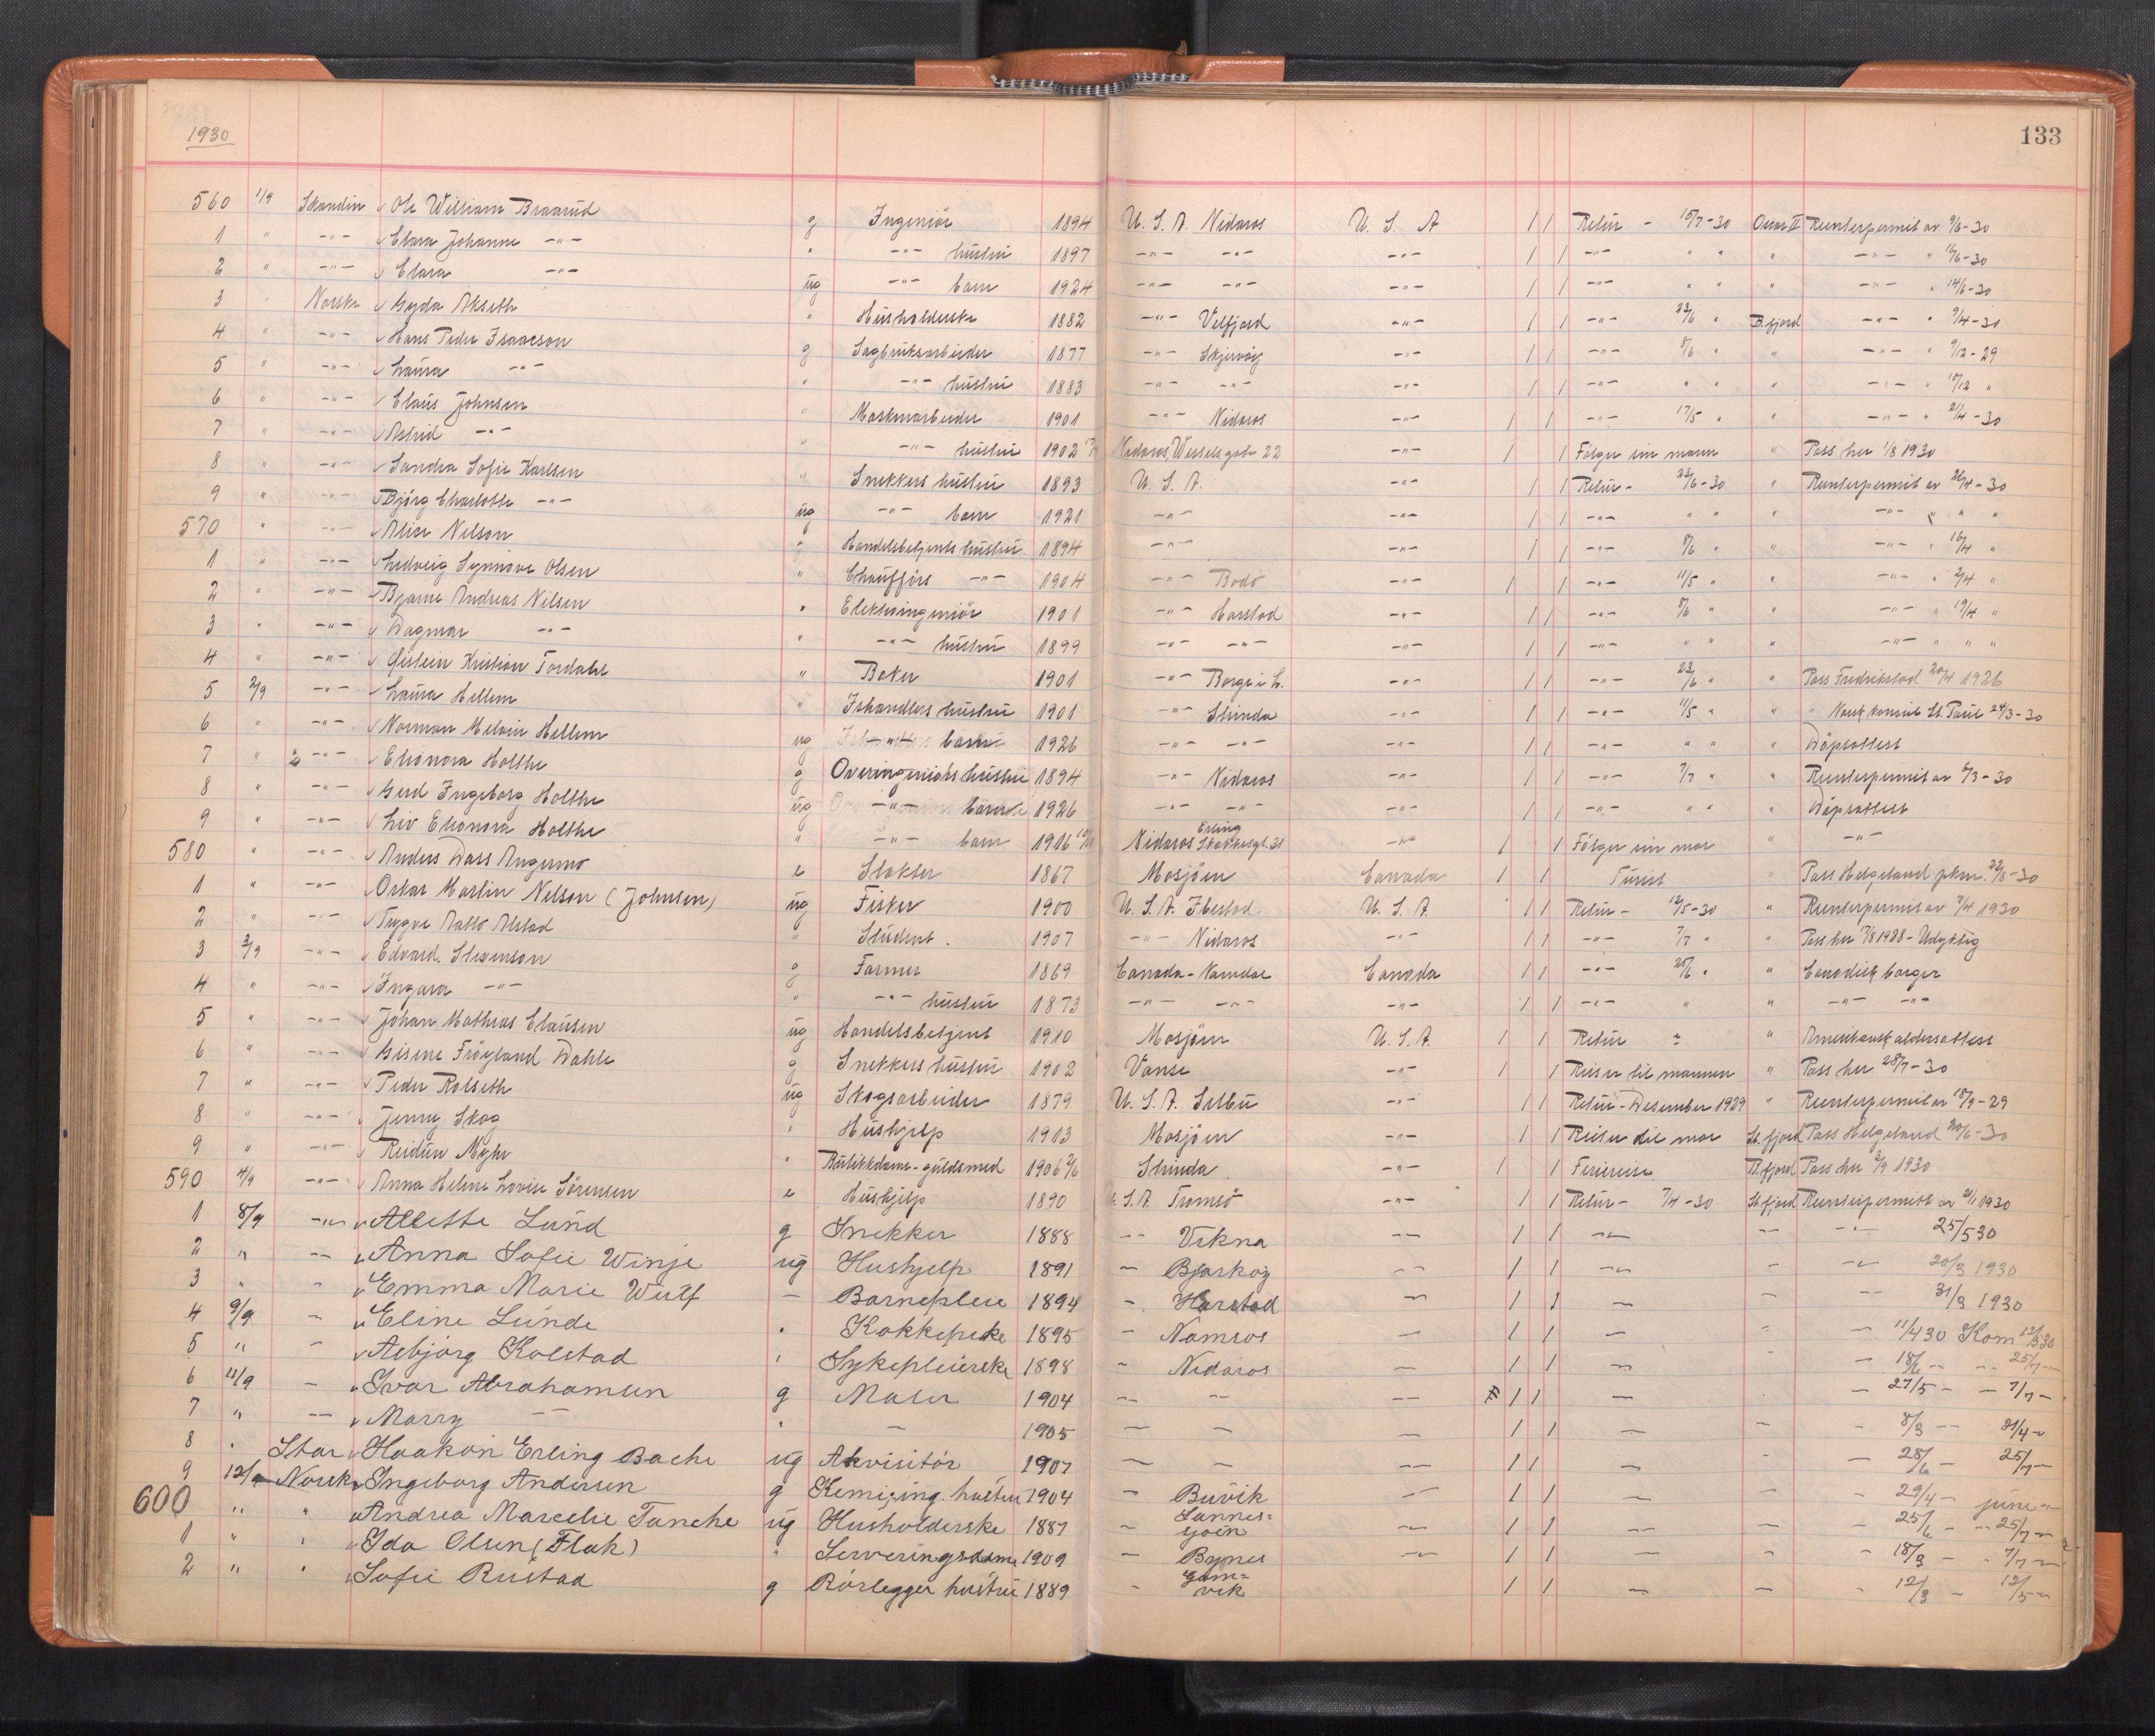 1930
133
560 1/9 Skandin Ole William Braarud g Ingeniör 1894 U.S.A. Nidaros U.S.A 1 1 Retur - 15/7-30 Oscar II Reenterpermit av 9/6-30
1 " -"- Clara Johanne -"- " -"- hustru 1897 -"- -"- -"- 1 1 -"- " " " -"- " 16/6-30
2 " -"- Clara -"- ug -"- barn 1924 -"- -"- -"- 1 1 -"- " " " -"- " 14/6-30
3 " Norske Gyda Akseth " Husholderske 1882 -"- Velfjord -"- 1 1 -"- 23/6 " B.fjord -"- " 9/4-30
4 " -"- Hans Peder Isaacson g Sagbruksarbeider 1877 -"- Skjervöy -"- 1 1 -"- 8/6 " " -"- " 9/12-29
5 " -"- Laura -"- " -"- hustru 1883 -"- -"- -"- 1 1 -"- " " " -"- " 10/12 "
6 " -"- Claus Johnsen " Maskinarbeider 1901 -"- Nidaros -"- 1 1 -"- 17/5 " " -"- " 21/4-30
7 " -"- Astrid -"- " -"- hustru 1902 Nidaros, Wesselsgate 22 -"- 1 1 Følger sin mann " Pass her 1/8 1930
8 " -"- Sandra Sofie Karlsen " Snekkers hustru 1893 U.S.A. -"- 1 1 Retur - 23/6-30 " Reenterpermit av 26/4-30
9 " -"- Bjørg Charlotte -"- ug -"- barn 1921 -"- -"- 1 1 -"- " " " -"- " " "
570 " -"- Alice Nelson g Handelsbetjents hustru 1894 -"- -"- 1 1 -"- 8/6 " " -"- " 16/4 "
1 " -"- Ludveig Synnöve Olsen " Chaufförs -"- 1904 -"- Bodö -"- 1 1 -"- 11/5 " " -"- " 2/4 "
2 " -"- Bjarne Andreas Nilsen " Elektroingeniör 1901 -"- Harstad -"- 1 1 -"- 8/6 " " -"- " 19/4 "
3 " -"- Dagmar -"- " -"- hustru 1899 -"- -"- -"- 1 1 -"- " " " -"- " " "
4 " -"- Øistein Kristian Tordahl " Baker 1901 -"- Borge i L. -"- 1 1 -"- 23/6 " " Pass Fredrikstad 20/4 1926
5 2/9 -"- Laura Hellem " Ishandlers hustru 1901 -"- Strinda -"- 1 1 -"- 11/5 " " " Norsk konsul St. Paul 24/3-30
6 " -"- Norman Melvin Hellem ug -"- barn 1926 -"- -"- -"- 1 1 -"- " " " Dåpsattest
7 " -"- Elionora Holthe g Overingeniörs hustru 1894 -"- Nidaros -"- 1 1 -"- 7/7 " " Reenterpermit av 6/3-30
8 " -"- Gerd Ingeborg Holthe ug -"- barn 1926 -"- -"- -"- 1 1 -"- " " " Dåpsattest
9 " -"- Liv Elionora Holthe " -"- barn 1916 Nidaros Erling Skakkesgt. 31 -"- 1 1 Følger sin mor " -"-
580 " -"- Anders Dass Angermo e Slakter 1867 Mosjöen Canada 1 1 Turist " Pass Helgeland pkm. 22/8-30
1 " -"- Oskar Martin Nelson (Johnsen) ug Fisker 1900 U.S.A. Ibestad U.S.A. 1 1 Retur - 12/5-30 " Reenterpermit av 7/4 1930
2 " -"- Trygve Alstad " Student 1907 -"- Nidaros -"- 1 1 -"- 7/7 " " Pass her 17/8 1928 - Udyktig
3 3/9 -"- Edvard Stevenson g Farmer 1869 Canada - Namdal Canada 1 1 -"- 25/6 " " Canadisk borger
4 " -"- Ingara -"- " -"- hustru 1873 -"- -"- -"- 1 1 -"- " " -"- -"-
5 " -"- Johan Mathias Clausen ug Handelsbetjent 1910 Mosjöen U.S.A. 1 1 Retur " Amerikansk aldersattest
6 " -"- Gisine Fröyland Dahle g Snekkers hustru 1902 Vanse -"- 1 1 Reiser til mannen " Pass her 28/7-30
7 " -"- Peder Rolseth ug Skogsarbeider 1879 U.S.A. Selbu -"- 1 1 Retur - Desember 1929 " Reenterpermit av 18/9-29
8 " -"- Jenny Skog " Hushjelp 1913 Mosjöen -"- 1 1 Reiser til mor St.fjord Pass Helgeland 20/6-30
9 " -"- Reidun Myhr " Butikkdame - guldsmed 1906 2/6 Strinda -"- 1 1 Feriereise B.fjord Pass her 3/9 1930
590 4/9 -"- Anna Helene Lovise Sörensen e Hushjelp 1890 U.S.A. Tromsö -"- 1 1 Retur - 7/4-30 St.fjord Reenterpermitt av 21/1 1930
1 8/9 -"- Allette Lund g Snekker 1888 -"- Vikna -"- 1 1 -"- -"- -"- 25/5 30
2 " -"- Anna Sofie Winje ug Hushjelp 1891 - Bjarköy -"- 1 1 -"- - -"- 20/3 1930
3 " - Emma Marie Wulf - Barnepleie 1894 - Harstad - 1 1 - - -"- 31/3 1930
4 9/9 - Eline Lunde " Kokkepike 1895 - Namsos - 1 1 - - - 11/4 30 Kom 12/5 30
5 " - Asbjörg Kolstad " Sykepleierske 1898 - Nidaros - 1 1 - - - 18/6 - - 25/7 -
6 11/9 - Ivar Abrahamsen g Maler 1904 - - -"- 1 1 - - - 27/5 - - 7/7 -
7 " -"- Marry -"- " - 1905 - - - 1 1 - - - 8/3 - 21/4 -
8 " Star Haakon Erling Bache ug Akvisitör 1907 - - - 1 1 - - - 28/6 - 25/7 -
9 12/9 Norsk Ingeborg Andersen g Kemi.ing. hustru 1904 - Buvik - 1 1 - - - 29/4 - june -
600 " " Andrea Marcelie Tanche ug Husholderske 1887 - Sannes= 1 1 - - - 25/6 - - 25/7 -
1 " " Ida Olsen (Flak) " Serveringsdame 1909 - Bynes - 1 1 - - - 18/3 - - 7/7 -
2 " " Sofie Rustad g Rörlegger hustru 1889 - Gam=vik 1 1 - - - 12/3 - 12/5 -